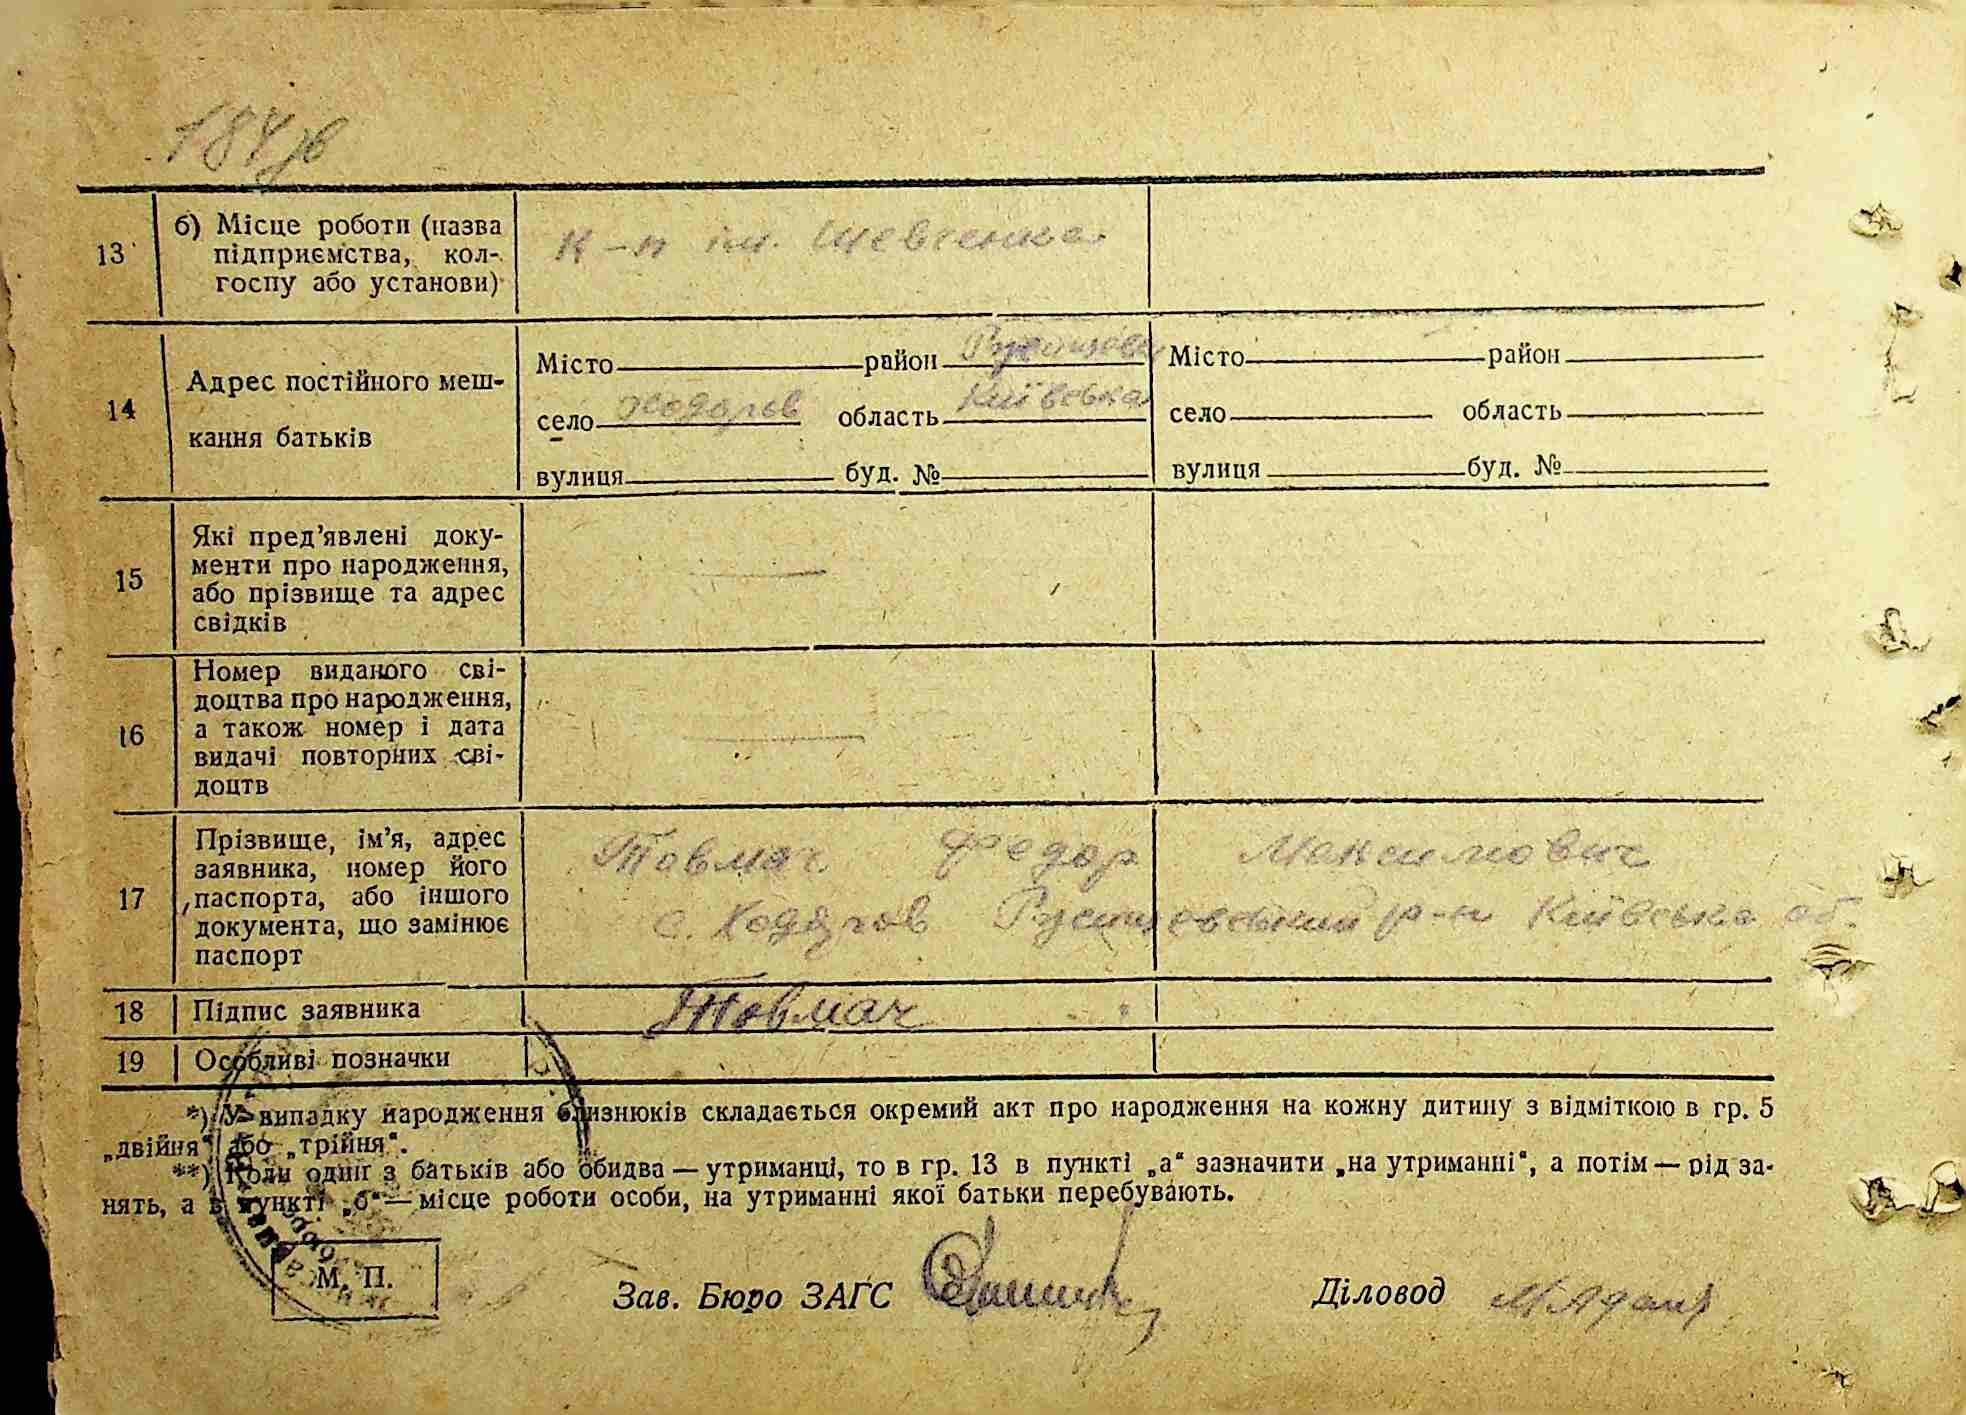 184 зв
13 б) Місце роботи (назва підприємства, колгоспу або установи) к-п ім. Шевченка
14 Адрес постійного меш-
кання батьків
Місто район Місто район
село Ходорів область Київська село область
вулиця буд. № вулиця буд. №
15 Які пред'явлені доку-
менти про народження,
або прізвище та адрес
свідків
16 Номер виданого сві-
доцтва про народження,
а також номер і дата
видачі повторних сві-
доцтв
17 Прізвище, ім'я, адрес
заявника, номер його
паспорта, або іншого
документа, що замінює
паспорт
Товмач Федор Максимович
с. Ходоров р-н Київська об.
18 Підпис заявника Товмач
19 Особливі позначки
*) У випадку народження близнюків складається окремий акт про народження на кожну дитину з відміткою в гр. 5
„двійня“ або „трійня“.
**) Коли один з батьків або обидва — утриманці, то в гр. 13 в пункті „а“ зазначити „на утриманні“, а потім — рід за-
нять, а в пункті „б“ — місце роботи особи, на утриманні якої батьки перебувають.
М. П. Зав. Бюро ЗАГС Діловод